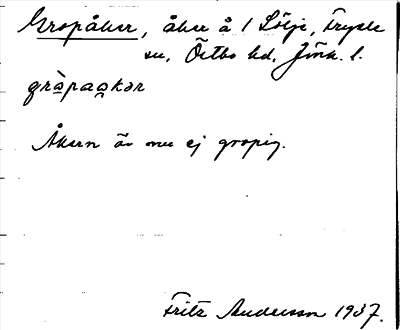 Gropåker, åker å 1 Sölje, Fryele
sn, Östbo hd, Jönk. l.
gràpaakər
Åkern är nu ej gropig.
Fritz Andersson 1937.